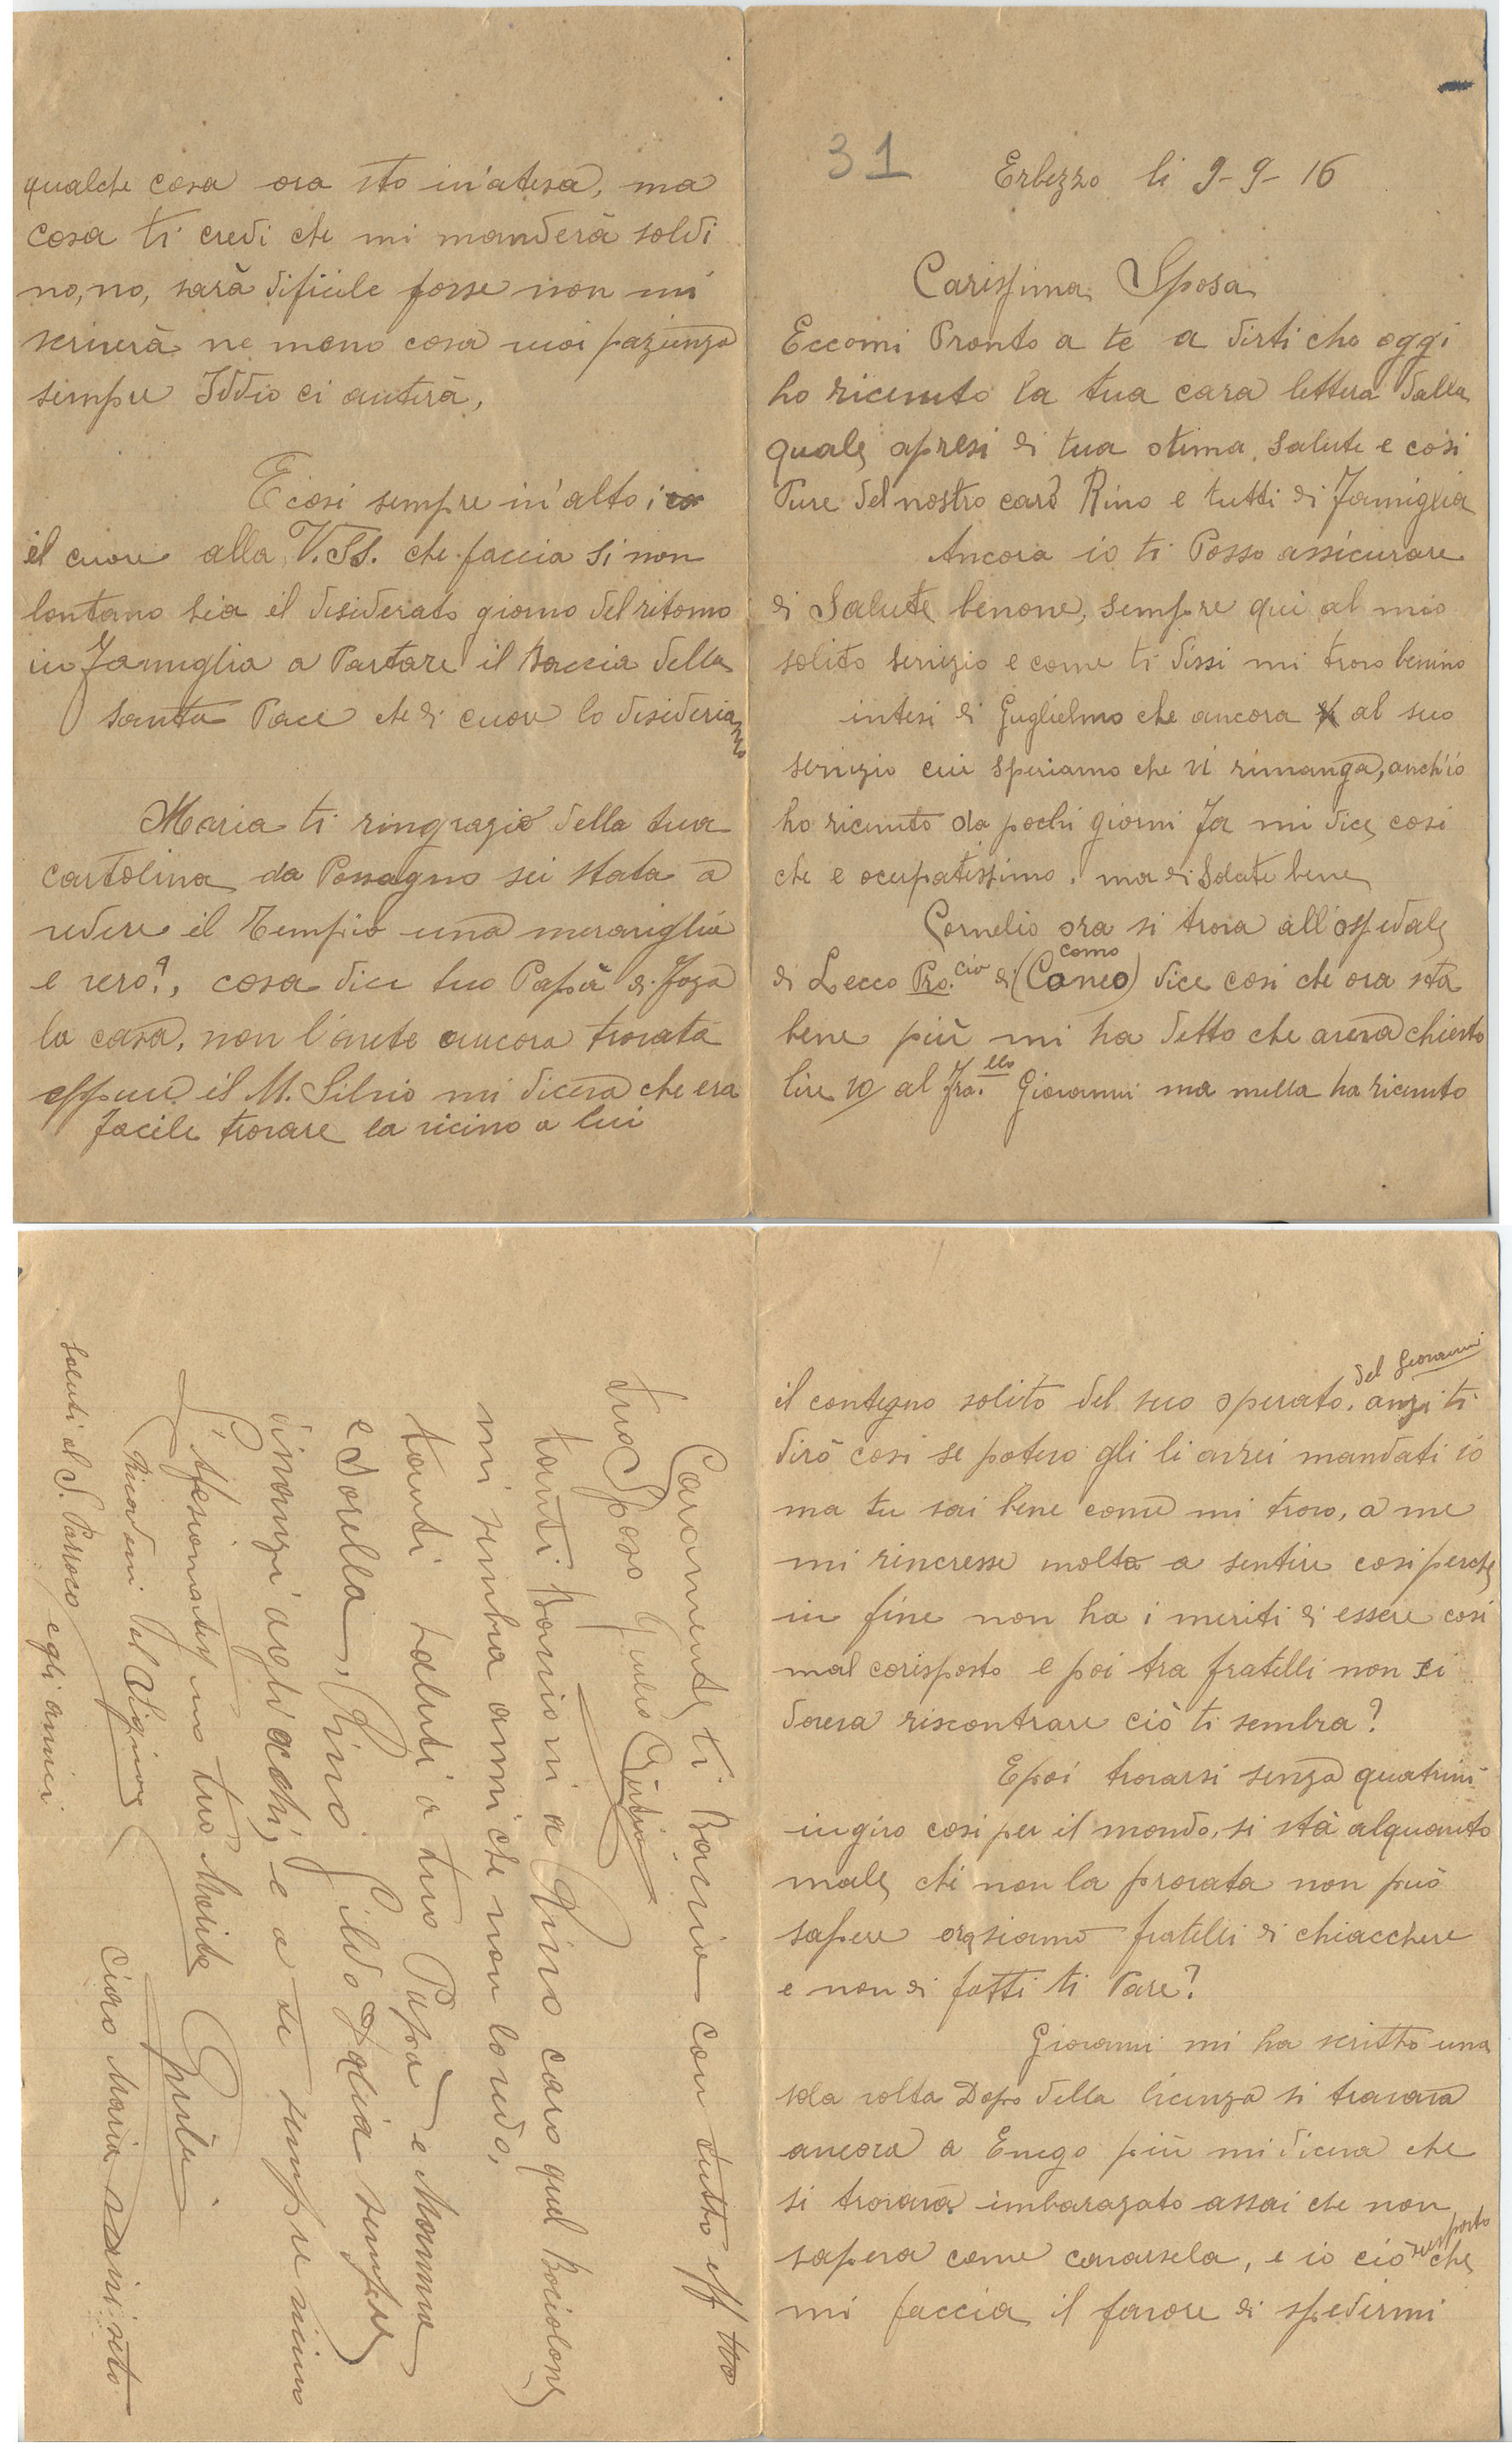 31
Erbezzo li 9-9-16
Carissima Sposa
Eccomi Pronto a te a dirti che oggi
ho ricevuto la tua cara lettera dalla
quale apresi di tua otima salute e così
Pure del nostro caro Rino e tutti di Famiglia
Ancora io ti Posso assicurare
di Salute benone, sempre qui al mio
solito servizio e come ti dissi mi trovo benino
intesi di Guglielmo che ancora al suo
servizio cui speriamo che vi rimanga, anch'io
ho ricevuto da pochi giorni Fa mi dice così
che e ocupatissimo, ma di Salute bene
Cornelio ora si trova all'ospedale
di Lecco Pro.cio di (Coneo) como dice così che ora sta
bene più mi ha detto che aveva chiesto
lire 10 al Fra.llo Giovanni ma nulla ha ricevuto
il contegno solito del suo operato, del Giovanni anzi ti
dirò così se potevo gli li avrei mandati io
ma tu sai bene come mi trovo, a me
mi rincresse molto a sentire così perche
in fine non ha i meriti di essere così
mal corisposto e poi tra fratelli non si
doveva riscontrare ciò ti sembra?
E poi trovarsi senza quatrini
in giro così per il mondo, si stà alquanto
male, chi non la provata non può
sapere ora siamo fratelli di chiacchere
e non di fatti ti Pare?
Giovanni mi ha scritto una
sola volta Dopo della licenza si trovava
ancora a Enego più mi diceva che
si trovava imbarazato assai che non
sapeva come cavarsela, e io ciò risposto che
mi faccia il favore di spedirmi
qualche cosa ora sto in'atesa, ma
cosa ti credi che mi manderà soldi
no, no, sarà dificile forse non mi
scriverà ne meno cosa vuoi pazienza
sempre Iddio ci auterà,
E così sempre in'alto i
il cuore alla V.SS. che faccia si non
lontano sia il desiderato giorno del ritorno
in Famiglia a Portare il Baccia della
santa Pace che di cuore lo desideriamo
Maria ti ringrazio della tua
cartolina da Possagno sei stata a
vedere il Tempio una meraviglia
e vero?, cosa dice tuo Papà di Foza
la casa, non l'avete ancora trovata
eppure il M. Silvio mi diceva che era
facile trovare la vicino a lui
Caramente ti Bacio con tutto eff tuo
tuo Sposo Giulio
tanti Bacioni a Rino caro quel Bociolone
mi sembra anni che non lo vedo,
tanti saluti a tuo Papà e Mamma
e Sorella, Rino Gildo Italia sempre
innanzi agli ochi, e a te sempre vicino
L'afesionatis mo tuo Marito
Ricordomi dal Signore
Ciao Maria
Saluti al S. Parroco egli amici